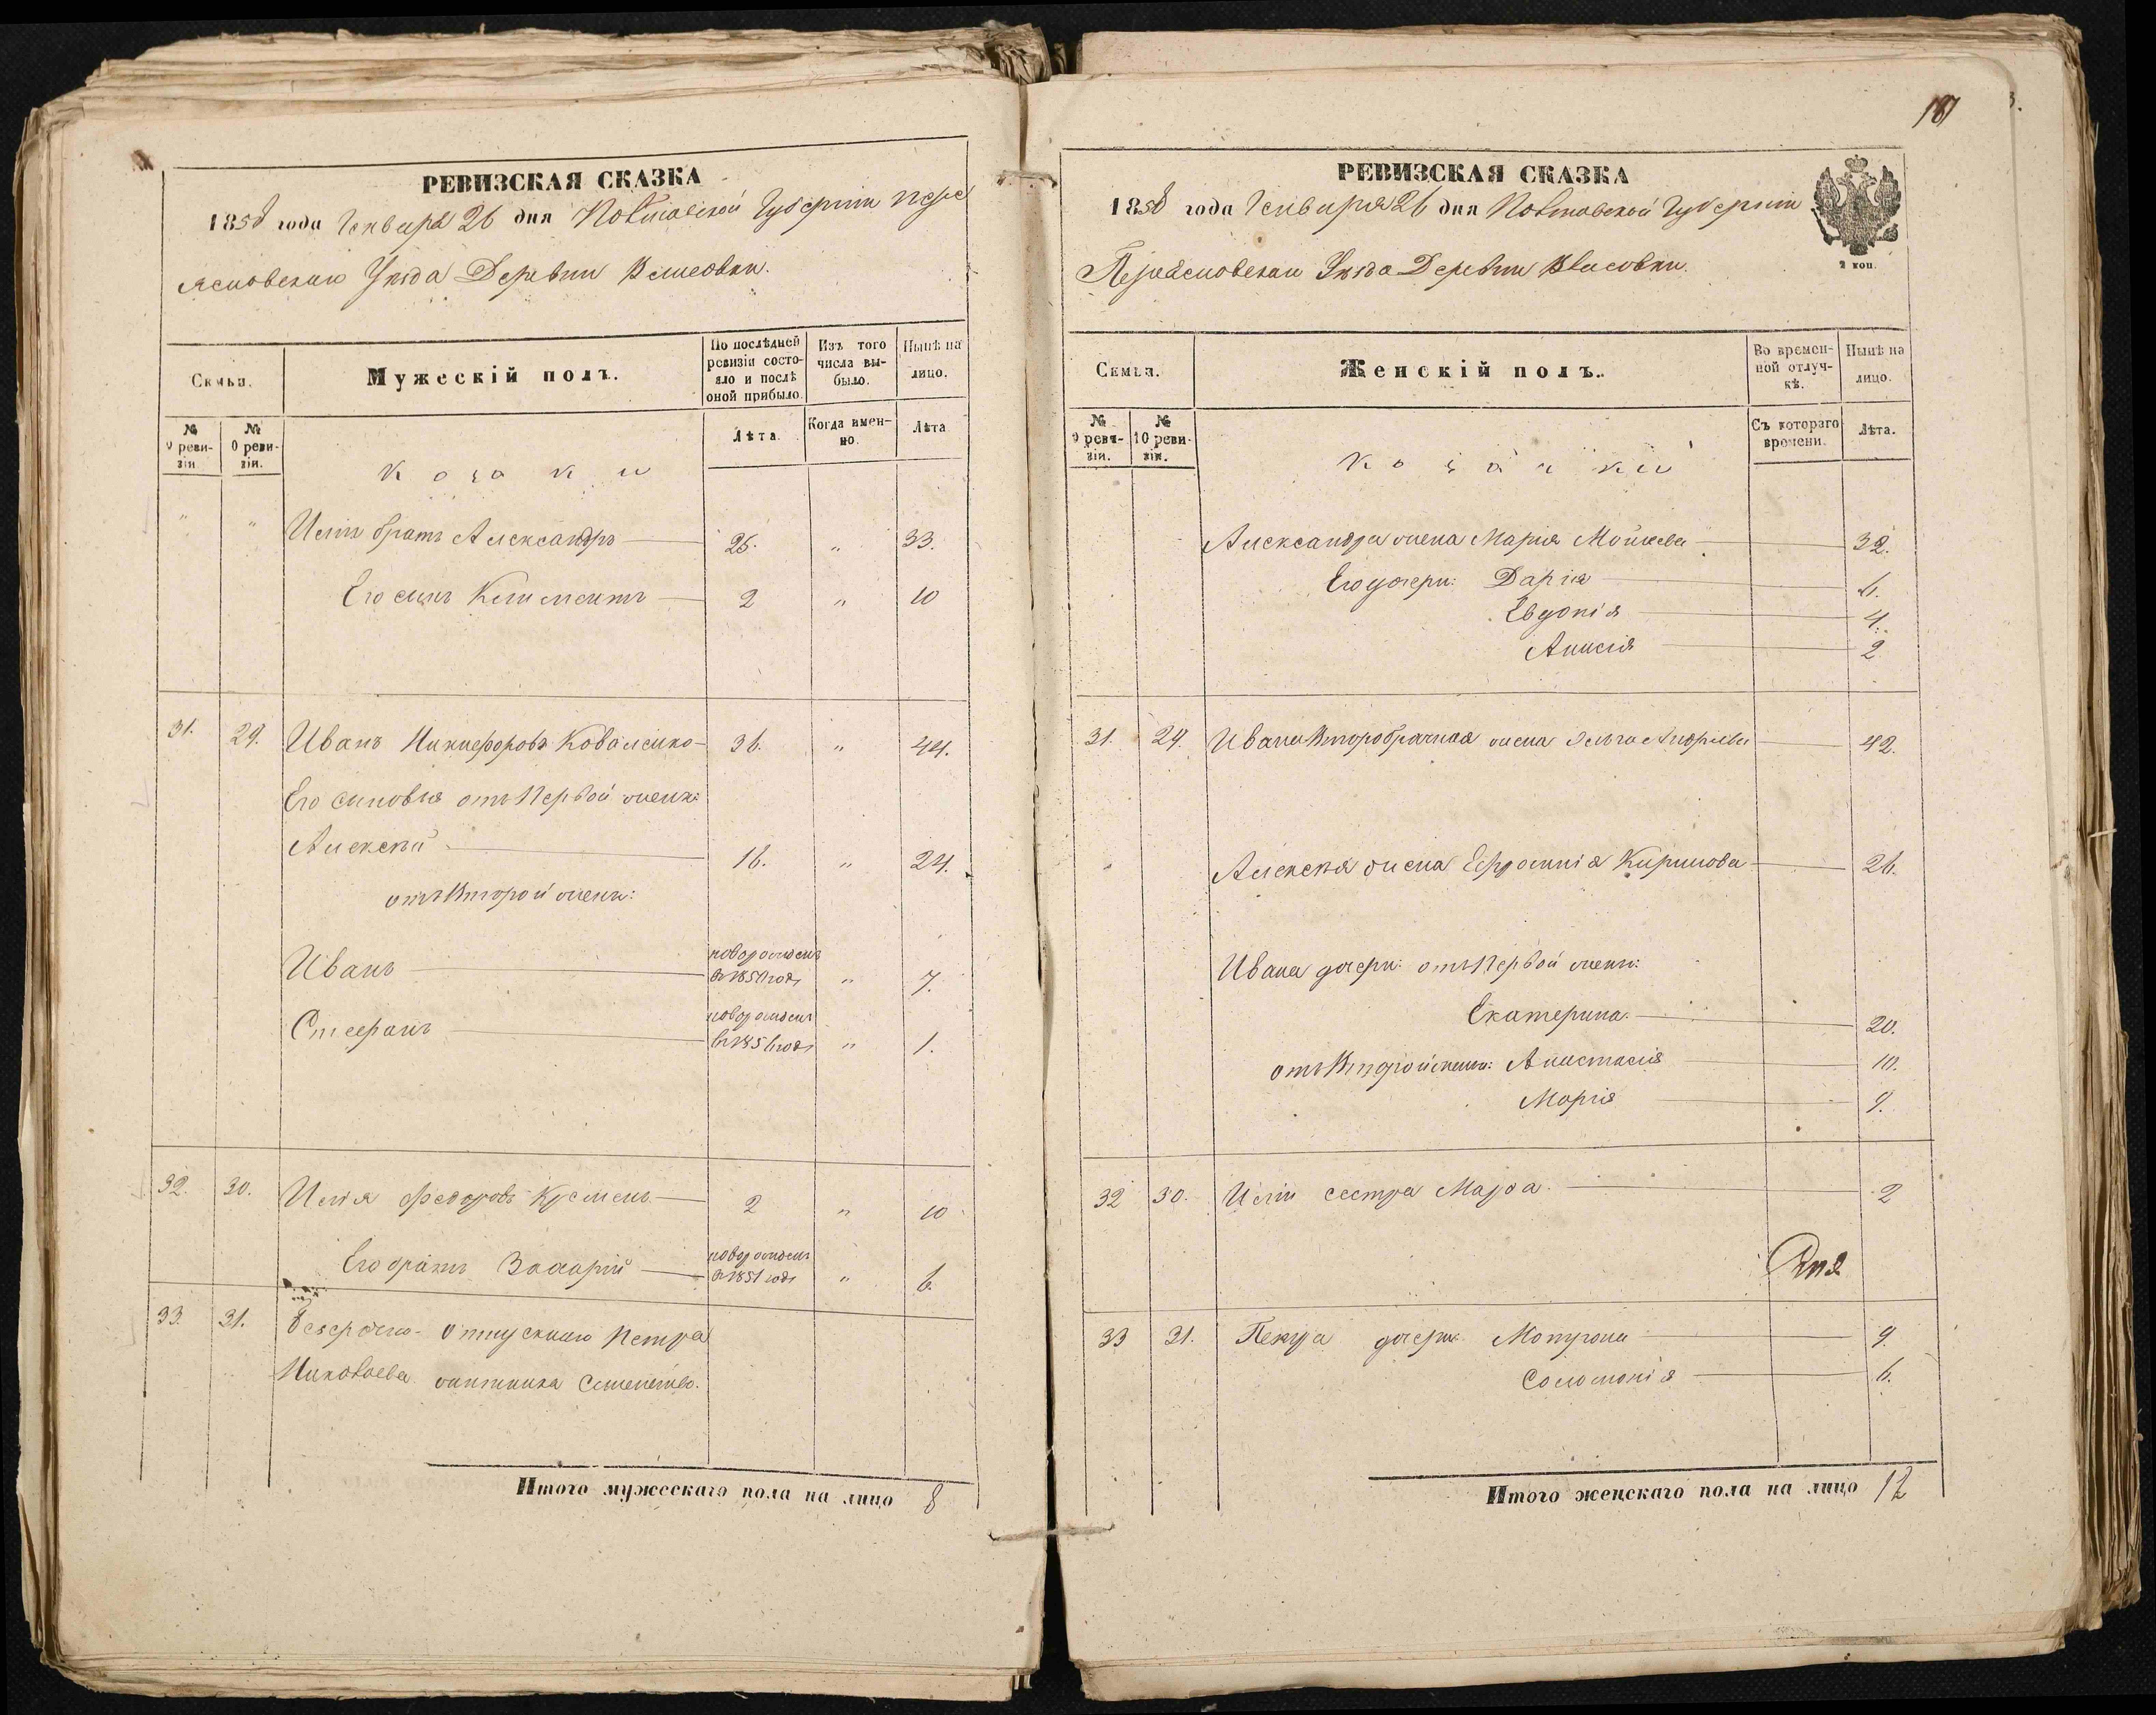 РЕВИЗСКАЯ СКАЗКА
1858 года Генваря 26 дня Полтавской Губернии Пере
яславскаго Уезда Деревни Власовки.
Семьи.
Мужескій полъ.
По послѣдней ревизіи состояло и послѣ оной прибыло.
Изъ того числа выбыло.
Нынѣ на лицо.
№ 9 ревизіи
№ 0 ревизіи.
Лѣта.
Когда именно.
Лѣта
Козаки
" " Иліи братъ Александръ 25. " 33.
Его сынъ Климентъ 2 " 10
31. 29. Иванъ Никифоровъ Коваленко 36. " 44.
Его сыновья отъ Первой жены:
Алексѣй 16. " 24.
отъ Второй жены:
Иванъ новорожденъ в 1850 годѣ " 7.
Стефанъ новорожденъ в 1856 годѣ " 1.
32. 30. Илія Федоровъ Кремень 2 " 10
Его братъ Захарій новорожденъ в 1851 годѣ " 6.
33. 31. Безсрочно-отпускнаго Петра
Николаева семейство.
Итого мужескаго пола на лицо 8
187
РЕВИЗСКАЯ СКАЗКА
1858 года Генваря 26 дня Полтавской Губернии
Переяславскаго Уезда Деревни Власовки.
2 коп.
Семья.
Женскій полъ.
Во временной отлучкѣ.
Нынѣ на лицо.
№ 9 ревизіи.
№ 10 ревизіи.
Съ котораго времени.
Лѣта.
Козачки
Александра жена Марія Моисеева 32.
Его дочери: Дарія 6.
Евдокія 4.
Анисія 2
31. 29. Ивана Второбрачная жена Ольга Андріева 42.
Алексѣя жена Ефросинія Кирилова 26.
Ивана дочери: отъ Первой жены:
Екатерина. 20.
отъ Второй жены: Анастасія 10.
Марія 9.
32 30. Иліи сестра Марфа. 2
33 31. Петра дочери: Матрона 9.
Соломонія 6.
Итого женскаго пола на лицо 12